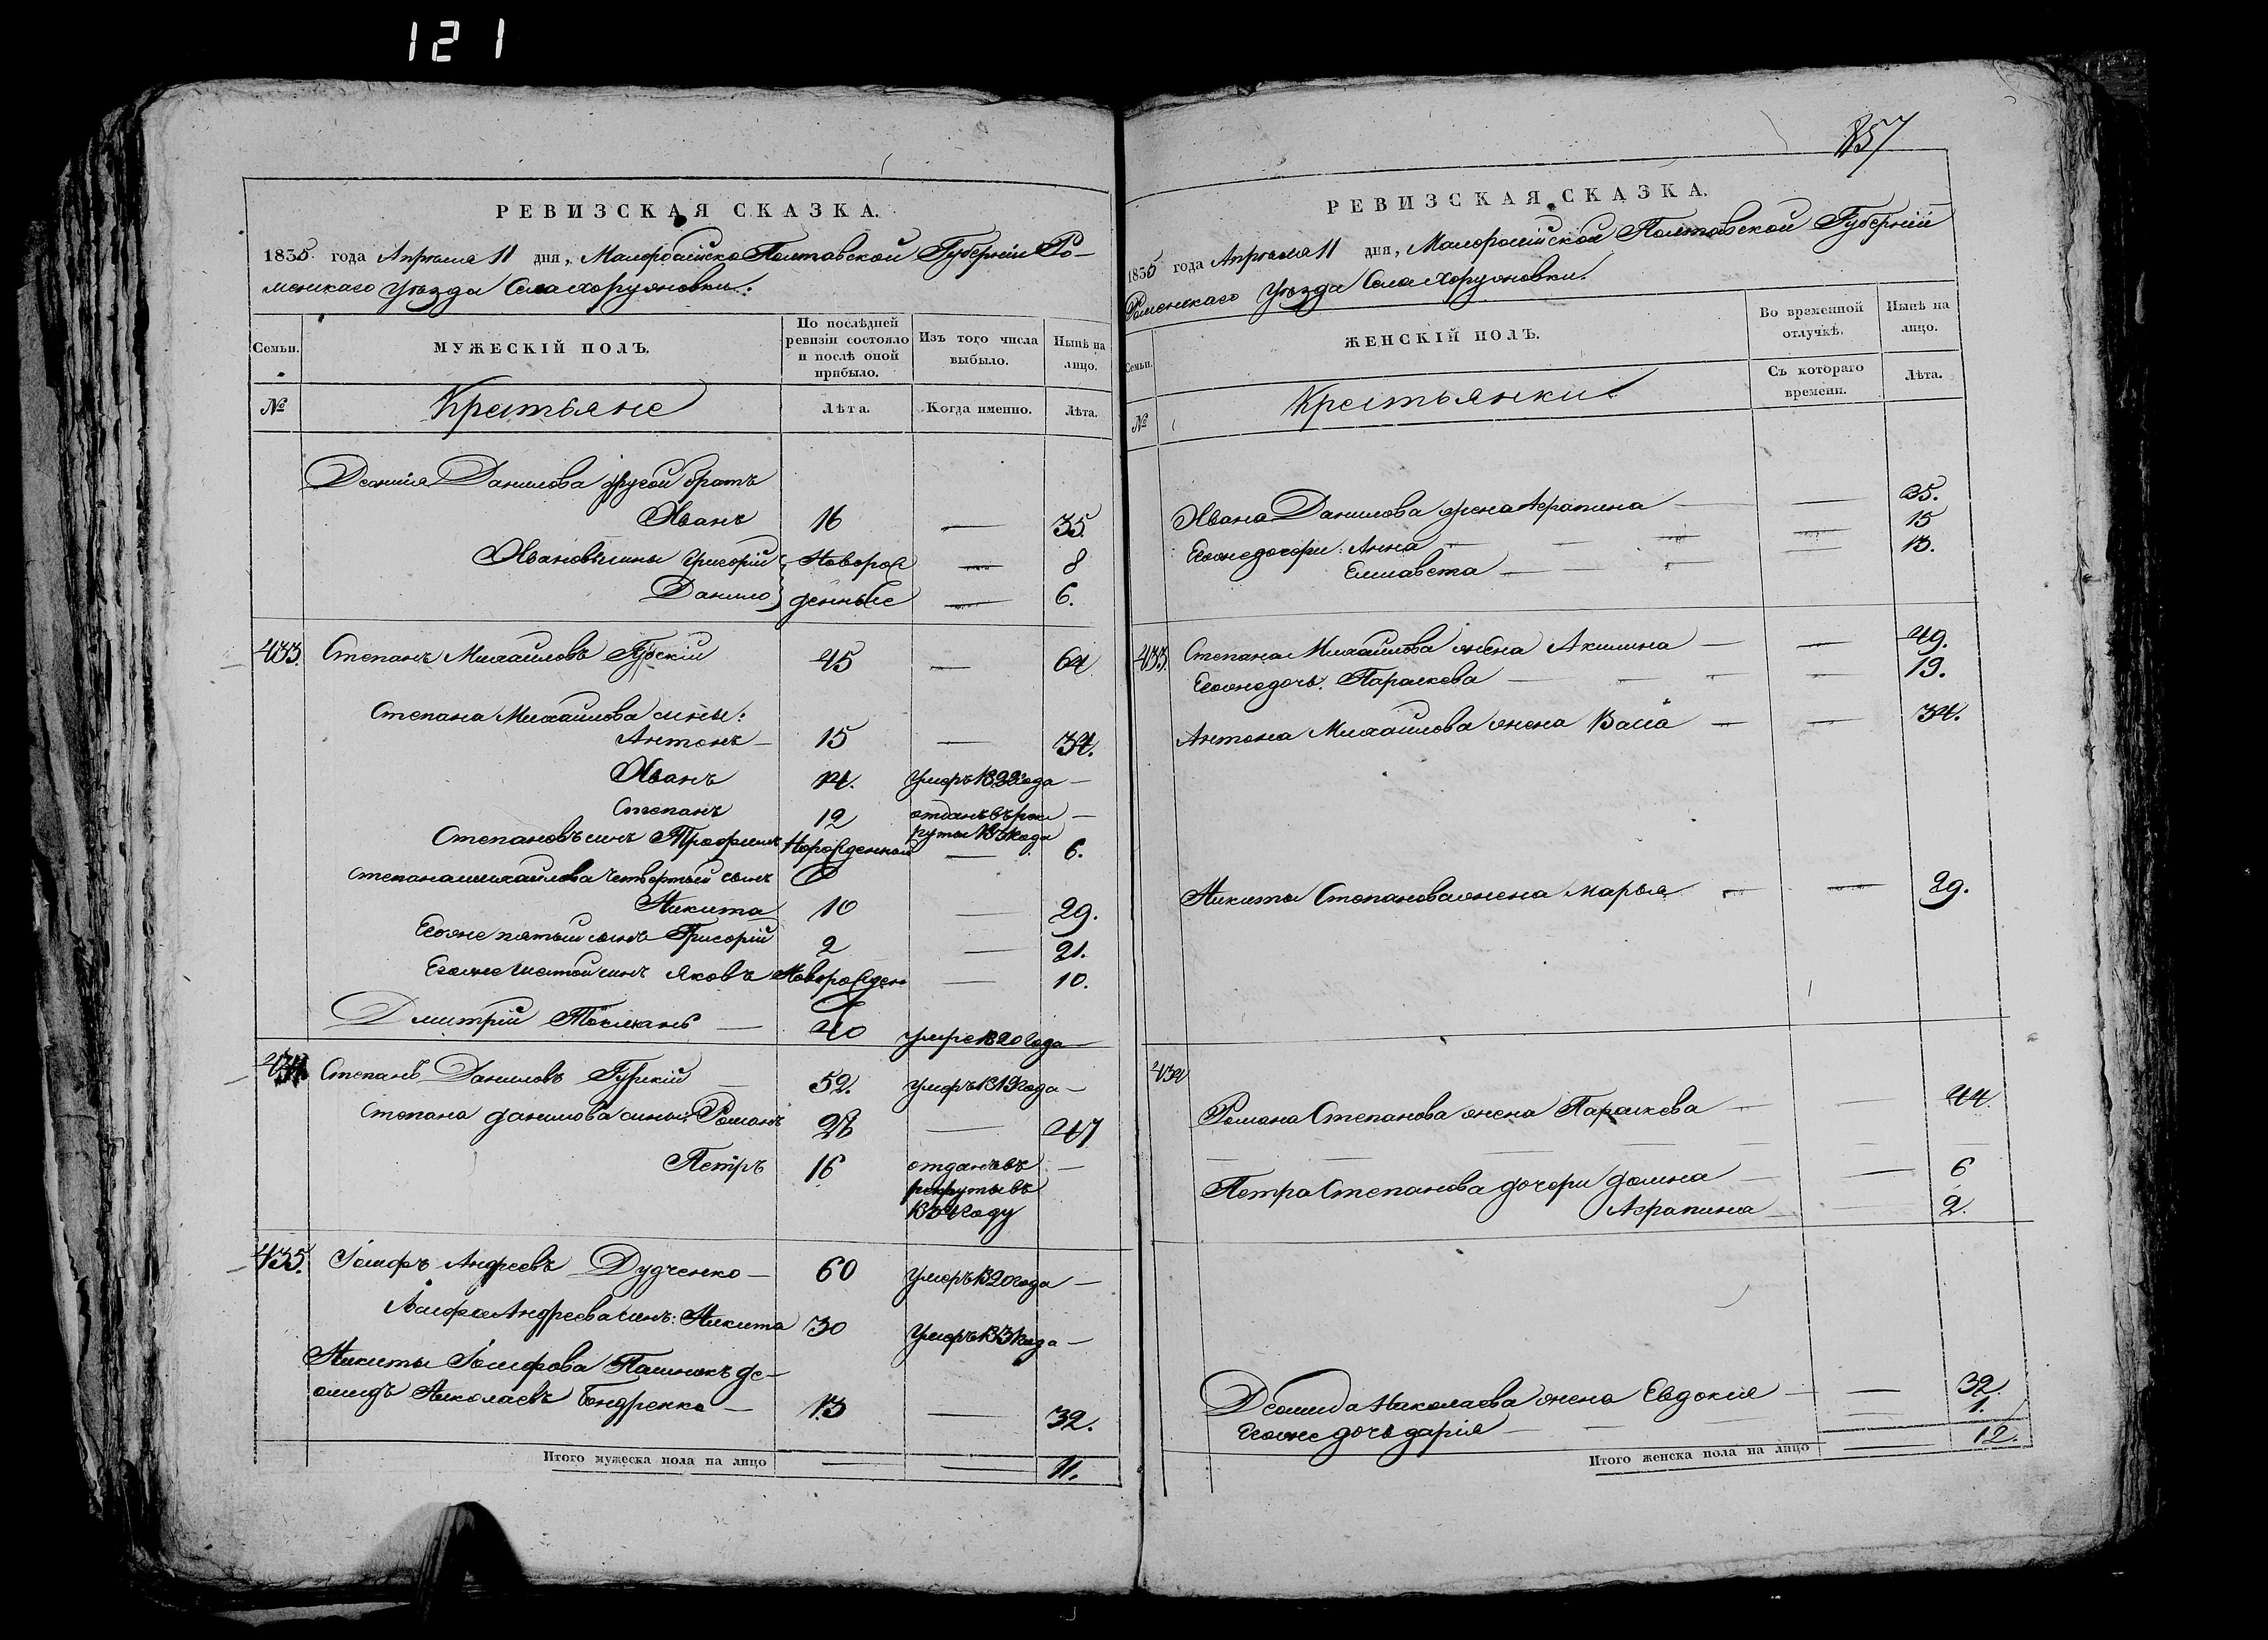 121
РЕВИЗСКАЯ СКАЗКА.
1835 года Апреля 11 дня, Малоросійско Полтавской Губерніи Ро-
менскаго Уѣзда Села Хоружовки.
Семьи.
МУЖЕСКІЙ ПОЛЪ.
По послѣдней ревизіи состояло и послѣ оной прибыло.
Изъ того числа выбыло.
Нынѣ на лицо.
№
Крестьяне
Лѣта.
Когда именно.
Лѣта.
Данилова другой братъ
Иванъ 16 — 35.
Ивановы сины Григорій Новорож 8
Данило денные 6.
433. Степанъ Михайловъ Гурскій 45 — 64
Степана Михайлова сины:
Антонъ — 15 — 34.
Иванъ 14. умеръ 1822 года —
Степанъ 12 отданъ въ рек —
Степановъ синъ Трофимъ руты года 6.
Степана Михайлова четвертый синъ
Никита 10 — 29.
Егоже пятый синъ Григорій 2 — 21.
Егоже шестой синъ Яковъ Новорожден — 10.
Дмитрій — 40 умре 1820 года —
434 Степанъ Даниловъ Гурскій — 52. умеръ 1819 года —
Степана Данилова сины: Романъ 28 — 47
Петръ 16 отданъ въ —
рекруты въ
1834 году
435. Іосифъ Андреевъ Дудченко — 60 умеръ 1820 года —
Іосифа Андреева синъ: Никита 30 Умеръ 1831 года —
Никиты Іосифова Де-
омидъ Николаевъ Бондренко — 13 — 32.
Итого мужеска пола на лицо — — 11.
857
РЕВИЗСКАЯ СКАЗКА.
1835 года Апреля 11 дня, Малоросійской Полтавской Губерніи
Роменскаго Уѣзда Села Хоружовки.
Семьи.
ЖЕНСКІЙ ПОЛЪ.
Во временной отлучкѣ.
Нынѣ на лицо.
№
Крестьянки
Съ котораго времени.
Лѣта.
Ивана Данилова жена Аграпина — — 35.
Егоже дочери: Анна — — 15
Елисавета — — 13.
433. Степана Михайлова жена Акилина — — 49.
Егоже дочь: Параскева — — 19.
Антона Михайлова жена — — 34.
Никиты Степанова жена Марья — — 29.
434
Романа Степанова жена Параскева — — 44.
Петра Степанова дочери Домна — — 6
Аграпина — 2.
Деомида Николаева жена Евдокія — — 32.
Егоже дочь Дарія — — 1.
Итого женска пола на лицо — 12.